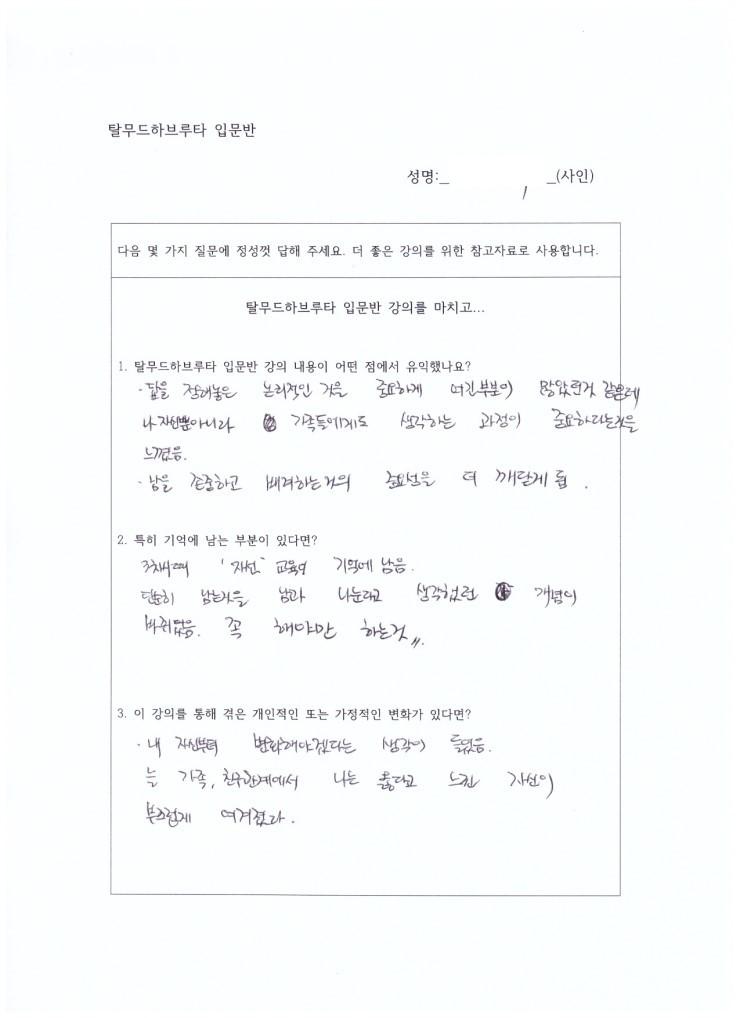 탈무드하브루타 입문반
성명:_ _(사인)
다음 몇 가지 질문에 정성껏 답해 주세요. 더 좋은 강의를 위한 참고자료로 사용합니다.
탈무드하브루타 입문반 강의를 마치고...
1. 탈무드하브루타 입문반 강의 내용이 어떤 점에서 유익했나요?
· 답을 정해놓은 논리적인 것을 중요하게 여긴부분이 많았던것 같은데
나 자신뿐아니라 가족들에게도 생각하는 과정이 중요하다는것을
느꼈음.
· 남을 존중하고 배려하는것의 중요성을 더 깨닫게 됨.
2. 특히 기억에 남는 부분이 있다면?
'자선' 교육이 기억에 남음.
단순히 남는것을 남과 나눈다고 생각했던 개념이
바뀌었음. 꼭 해야만 하는것 〃.
3. 이 강의를 통해 겪은 개인적인 또는 가정적인 변화가 있다면?
· 내 자신부터 변화해야겠다는 생각이 들었음.
늘 가족, 친구관계에서 나는 옳다고 느낀 자신이
부끄럽게 여겨졌다.